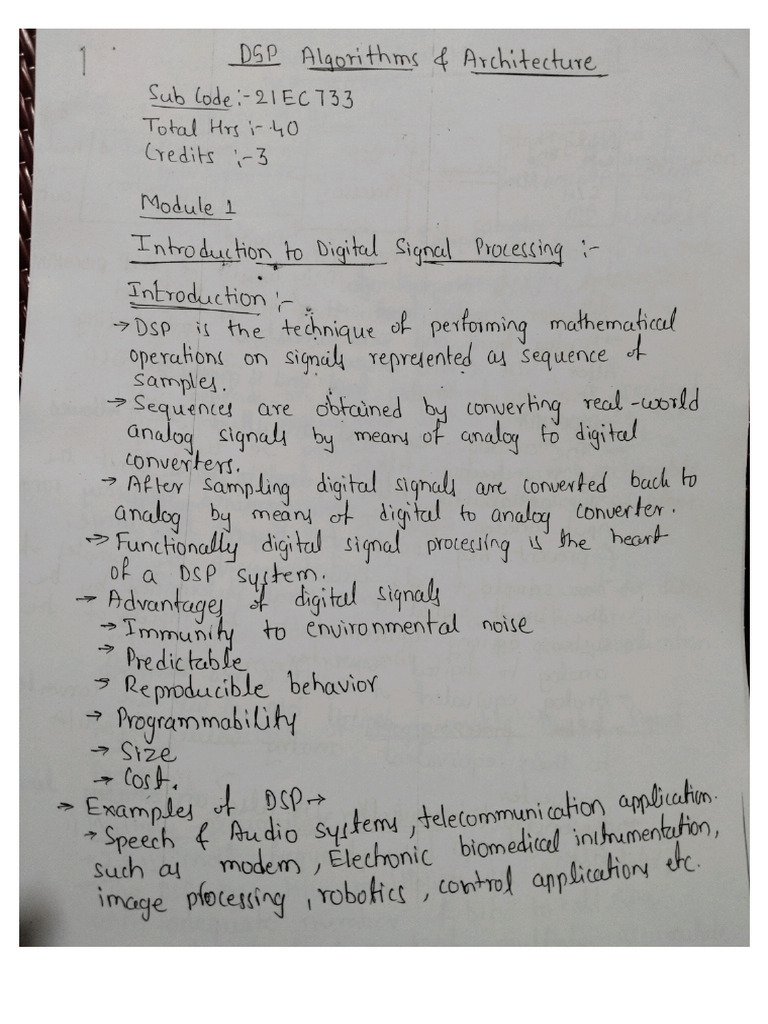 1
DSP Algorithms & Architecture
Sub Code :- 21EC733
Total Hrs :- 40
Credits :- 3
Module 1
Introduction to Digital Signal Processing :-
Introduction :-
→ DSP is the technique of performing mathematical
operations on signals represented as sequence of
samples.
→ Sequences are obtained by converting real-world
analog signals by means of analog to digital
converters.
→ After sampling digital signals are converted back to
analog by means of digital to analog converter.
→ Functionally digital signal processing is the heart
of a DSP system.
→ Advantages of digital signals
→ Immunity to environmental noise
→ Predictable
→ Reproducible behavior
→ Programmability
→ Size
→ Cost.
→ Examples of DSP →
→ Speech & Audio systems, telecommunication application.
such as modem, Electronic biomedical instrumentation,
image processing, robotics, control applications etc.